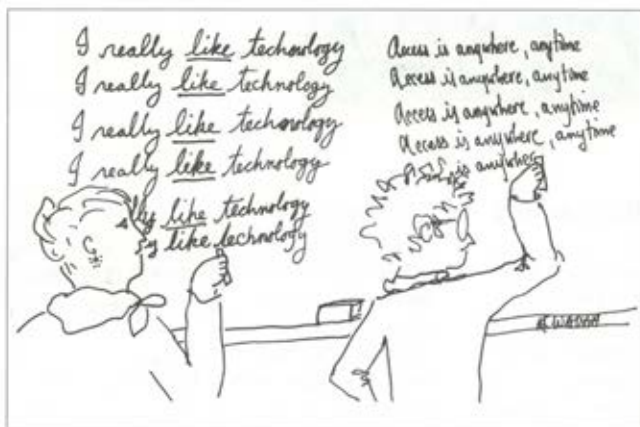 I really like technology
I really like technology
I really like technology
I really like technology
lly like technology
y like technology
Access is anywhere, anytime
Access is anywhere, anytime
Access is anywhere, anytime
Access is anywhere, anytime
is anywhere